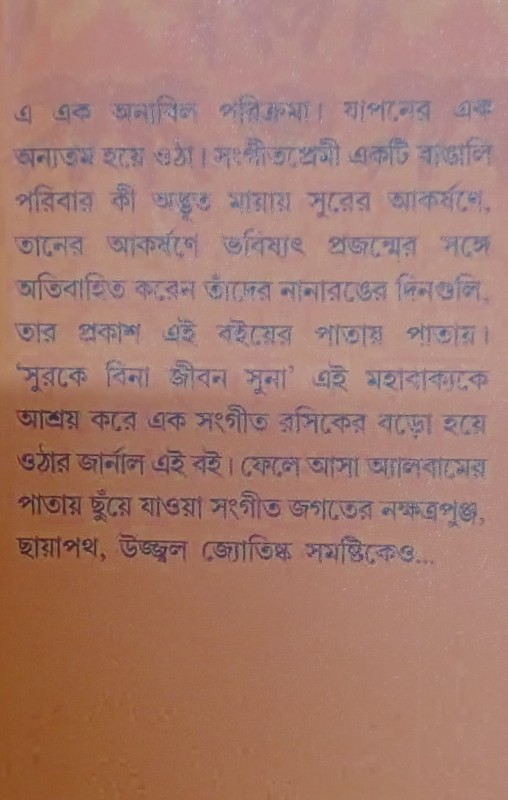 এ এক অনাবিল পরিক্রমা। যাপনের এক
অন্যতম হয়ে ওঠা। সংগীতপ্রেমী একটি বাঙালি
পরিবার কী অদ্ভুত মায়ায় সুরের আকর্ষণে,
তানের আকর্ষণে ভবিষ্যৎ প্রজন্মের সঙ্গে
অতিবাহিত করেন তাঁদের নানারঙের দিনগুলি,
তার প্রকাশ এই বইয়ের পাতায় পাতায়।
'সুরকে বিনা জীবন সুনা' এই মহাবাক্যকে
আশ্রয় করে এক সংগীত রসিকের বড়ো হয়ে
ওঠার জার্নাল এই বই। ফেলে আসা অ্যালবামের
পাতায় ছুঁয়ে যাওয়া সংগীত জগতের নক্ষত্রপুঞ্জ,
ছায়াপথ, উজ্জ্বল জ্যোতিষ্ক সমষ্টিকেও...